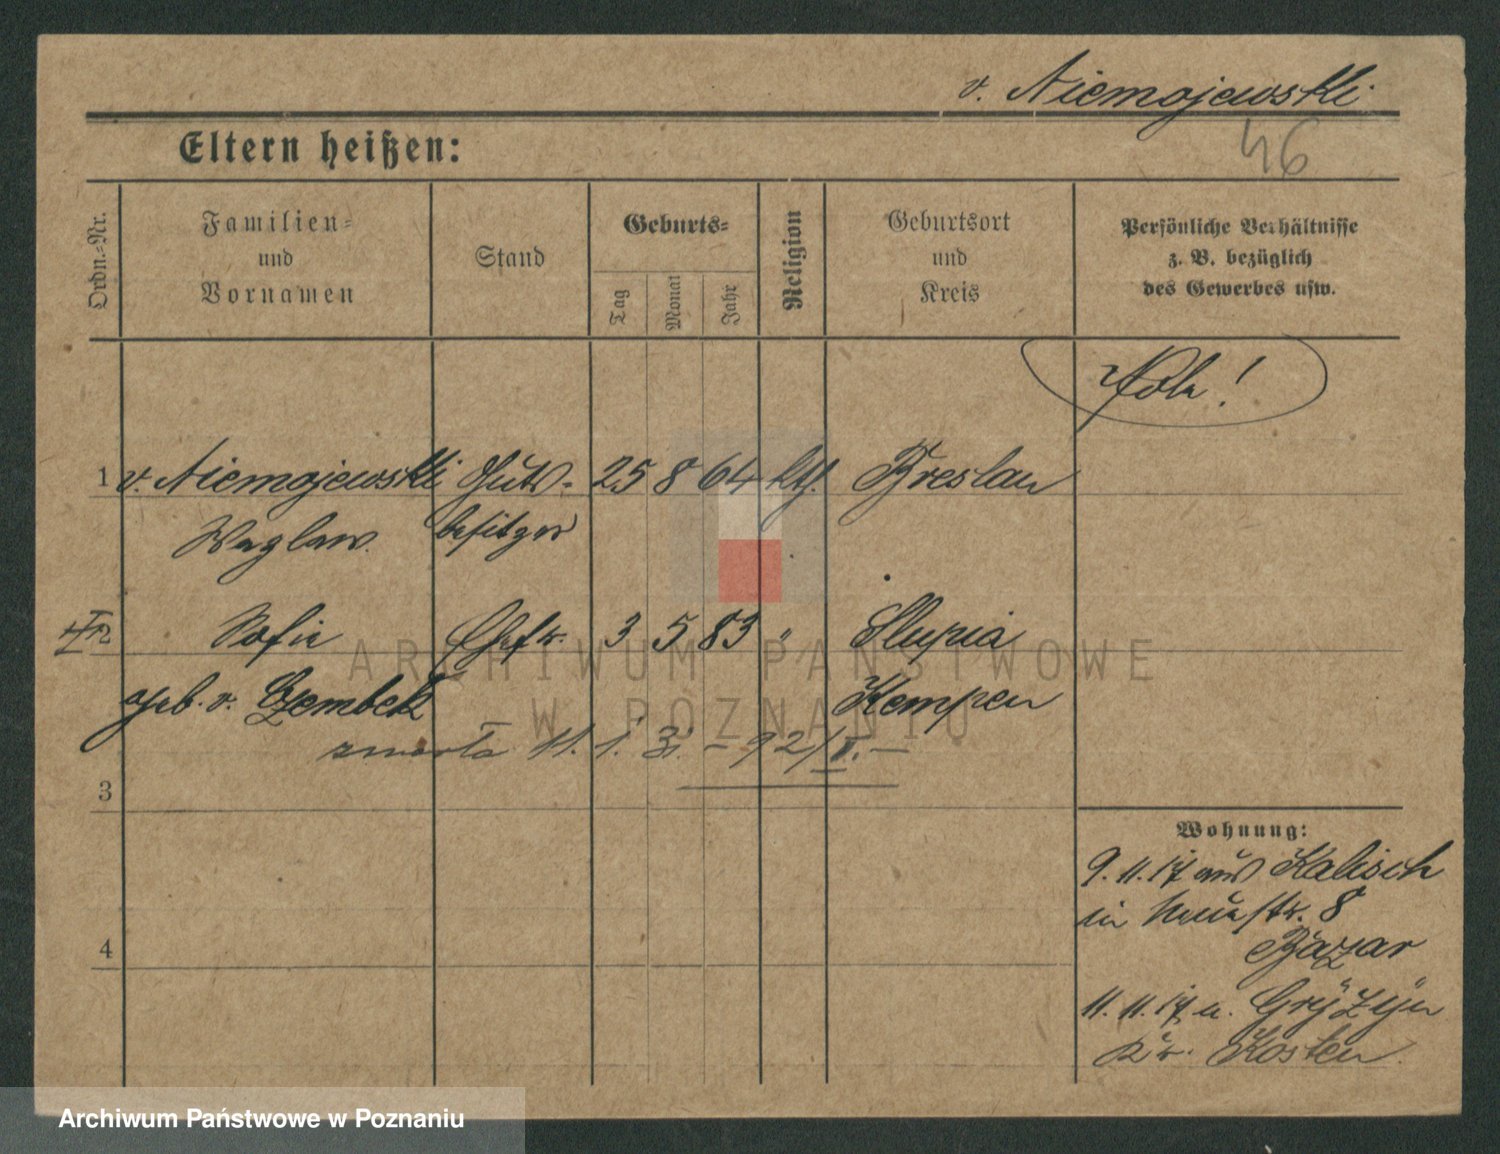 v. Niemojewski
46
Eltern heißen:
Ordn.-Nr.
Familien-
und
Vornamen
Stand
Geburts-
Tag
Monat
Jahr
Religion
Geburtsort
und
Kreis
Persönliche Verhältnisse
z. B. bezüglich
des Gewerbes usw.
Pole!
1 v. Niemojewski Guts- 25 8 64 kth. Breslau
Waglaw. besitzer
2 Sofie Ehefr. 3 5 83 " Slupia
geb. v. Szembek Kempen
zmarła 11. 1.
3
Wohnung:
9.11.17 aus Kalisch
in Neuestr. 8
Bazar
4
11.11.17 n. Gryżyn
Kr. Kosten.
ARCHIWUM PAŃSTWOWE
W POZNANIU
Archiwum Państwowe w Poznaniu